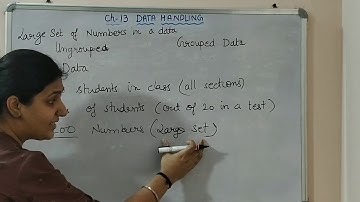 Ch-13 DATA HANDLING
Large Set of Numbers in a data
Ungrouped Grouped Data
Data
students in class (all sections)
of students (out of 20 in a test)
200 Numbers (Large set)